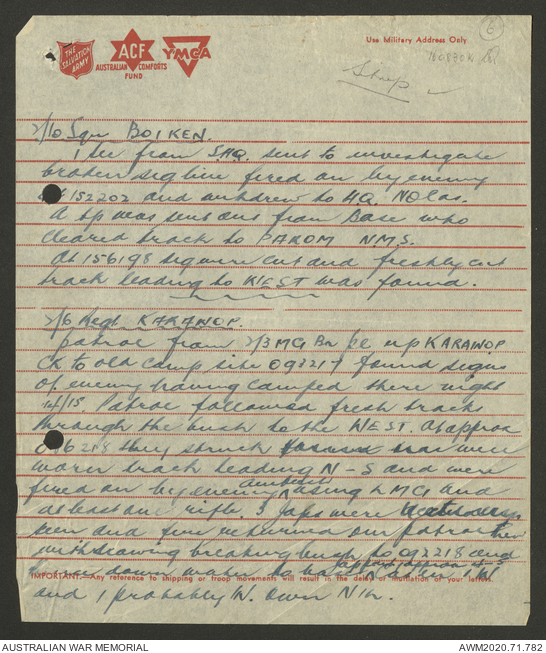 THE SALVATION ARMY
ACF
AUSTRALIAN COMFORTS FUND
YMCA
Use Military Address Only
6
Sharp
2/10 Sqn BOIKEN.
1 Sec from SHQ. sent to investigate
broken sig line fired on by enemy
at 152202 and withdrew to HQ. NO Cas.
A tp was sent out from Base who
cleared track to PAROM NMS.
At 156198 sig wire cut and freshly cut
track leading to WEST was found.
2/6 Regt KARAWOP.
patrol from 2/3 MG Bn pl up KARAWOP
CK to old camp site 092217 found signs
of enemy having camped there night
14/15 Patrol followed fresh tracks
through the bush to the WEST. At approx
218 they struck well
worn track leading N-S and were
fired on by enemy ambush using LMG and
at least one rifle. 3 Japs were
seen and fire returned our patrol then
withdrawing breaking bush to 092218 and
down water to base
IMPORTANT.—Any reference to shipping or troop movements will result in the delay or mutilation of your letters.
and 1 probably W. Own Nil.
AUSTRALIAN WAR MEMORIAL
AWM2020.71.782